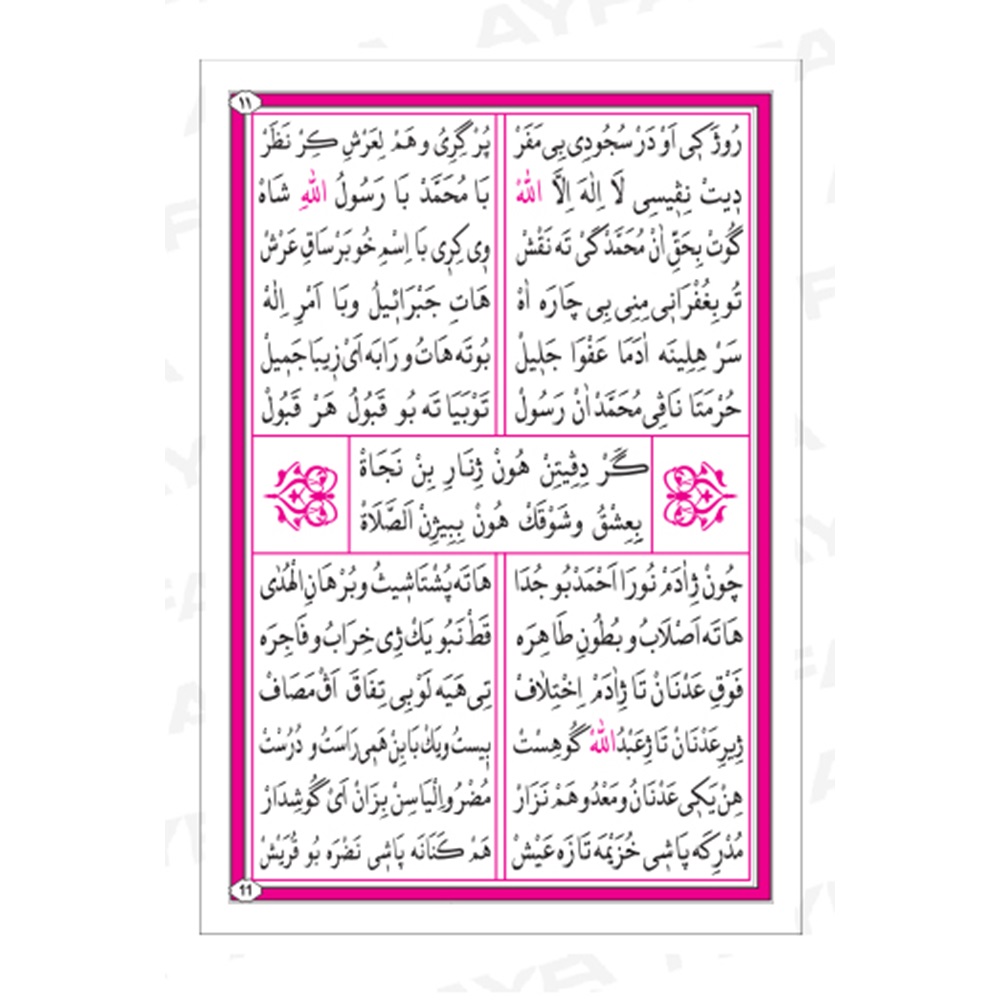 AYFA
١١
رُوژَكِی اَوْ دَرْ سُجُودِی بِی مَفَرْ پُرْ گِرِیُ و هَمْ لِعَرْشِ كِرْ نَظَرْ
دِیتْ نِڤِیسِی لَا اِلٰهَ اِلَّا اللّٰهْ بَا مُحَمَّدْ بَا رَسُولُ اللّٰهِ شَاهْ
گُوتْ بِحَقِّ اٰنْ مُحَمَّدْ كَیْ تَه نَقْشْ وِی كِرِی بَا اِسْمِ خُو بَرْ سَاقِ عَرْشْ
تُو بِغُفْرَانِی مِنِی بِی چَارَه اٰهْ هَاتِ جَبْرَائِیلُ وبَا اَمْرِ اِلٰهْ
سَرْ هِلِینَه اٰدَمَا عَفْوَا جَلِیلْ بُوتَه هَاتُ و رَابَه اَیْ زِیبَا جَمِیلْ
حُرْمَتَا نَاڤِی مُحَمَّدْ اٰنْ رَسُولْ تَوْبَیَا تَه بُو قَبُولُ هَرْ قَبُولْ
گَرْ دِڤِیتِنْ هُونْ ژِنَارِ بِنْ نَجَاةْ
بِعِشْقُ وشَوْقَكْ هُونْ بِبِیژِنْ اَلصَّلَاةْ
چُونْ ژِاٰدَمْ نُورَا اَحْمَدْ بُو جُدَا هَاتَه پُشْتَا شِیثُ و بُرْهَانِ الْهُدٰی
هَاتَه اَصْلَابُ و بُطُونِ طَاهِرَه قَطْ نَبُو یَكْ ژِی خِرَابُ و فَاجِرَه
فَوْقِ عَدْنَانْ تَا ژِاٰدَمْ اِخْتِلَافْ تِی هَیَه لَوْ بِی تِفَاقَ اَڤْ مَصَافْ
ژِیرِ عَدْنَانْ تَا ژِعَبْدُ اللّٰهْ گُوهِسْتْ بِیسْتُ ویَكْ بَابِنْ هَمِی رَاسَتُ و دُرُسْتْ
هِنْ یَكِی عَدْنَانُ ومَعْدُ و هَمْ نَزَارْ مُضْرُ و اِلْیَاسِنْ بِزَانْ اَیْ گُوشِدَارْ
مُدْرِكَه پَاشِی خُزَیْمَه تَازَه عَیْشْ هَمْ كَنَانَه پَاشِی نَضْرَه بُو قُرَیْشْ
11
AYFA